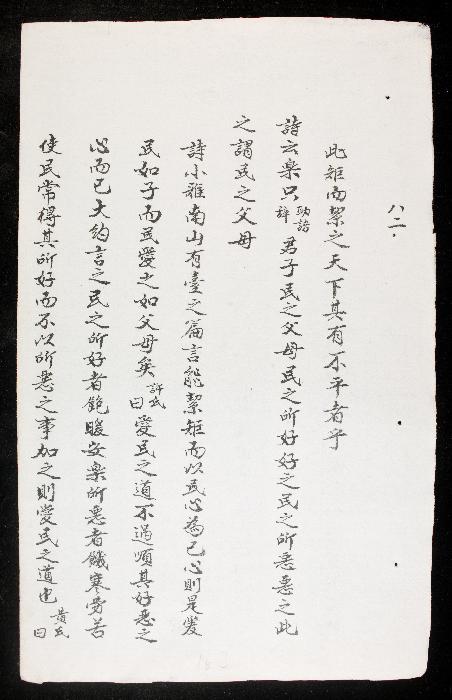 八二·
此矩而絜之天下其有不平者乎
詩云樂只助語辞君子民之父母民之所好好之民之所惡惡之此
之謂民之父母
詩小雅南山有臺之篇言能絜矩而以民心為己心則是愛
民如子而民愛之如父母矣許氏曰愛民之道不過順其好惡之
心而已大約言之民之所好者飽暖安樂所惡者饑寒勞苦
使民常得其所好而不以所惡之事加之則愛民之道也黄氏曰